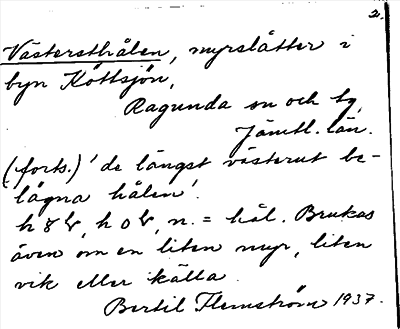 2.
Västersthålen, myrslåtter i
byn Köttsjön,
Ragunda sn och tg,
Jämtl. län.
(forts.) 'de längst västerut be-
lägna hålen'.
h, h, n. = hål. Brukas
även om en liten myr, liten
vik eller källa.
Bertil Flemström 1937.